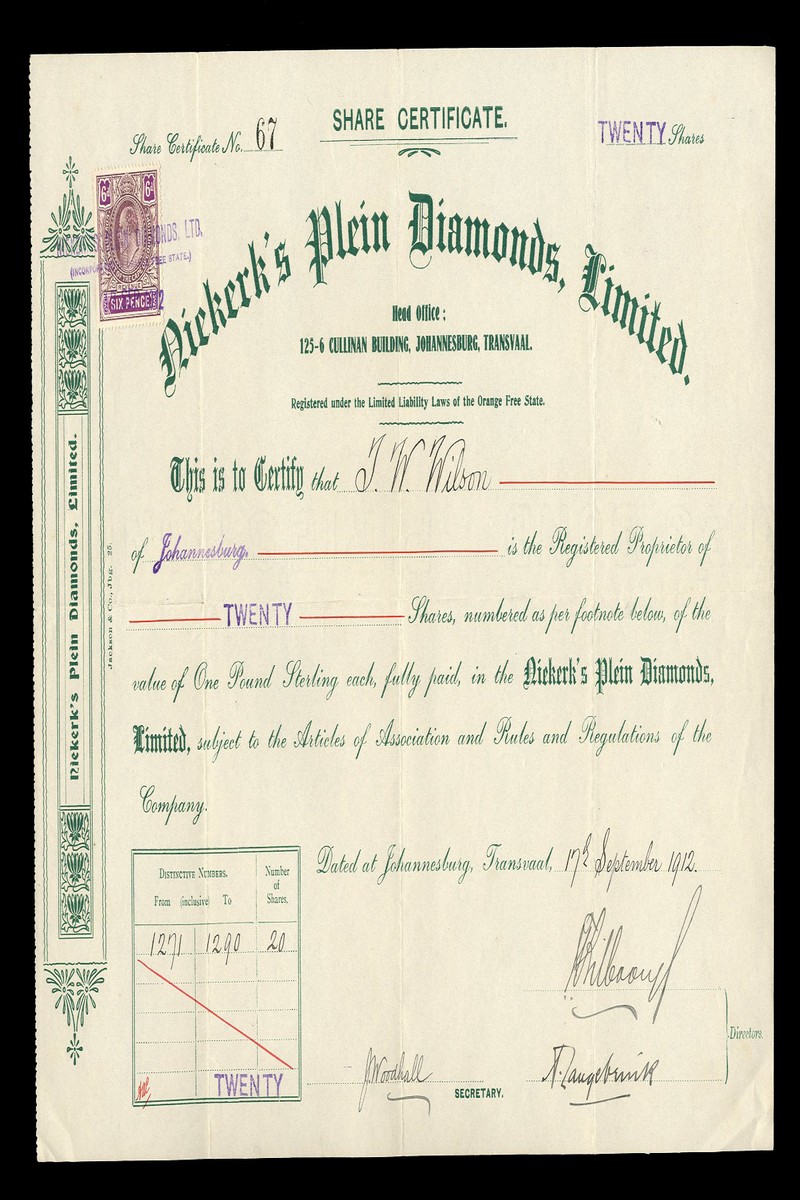 SHARE CERTIFICATE.
Share Certificate No. 67
TWENTY Shares
6D 6D
SIX PENCE
NDS, LTD,
EE STATE.)
Niekerk's Plein Diamonds, Limited.
Head Office:
125-6 CULLINAN BUILDING, JOHANNESBURG, TRANSVAAL.
Registered under the Limited Liability Laws of the Orange Free State.
This is to Certify that J. W. Wilson
of Johannesburg. is the Registered Proprietor of
TWENTY Shares, numbered as per footnote below, of the
value of One Pound Sterling each, fully paid, in the Niekerk's Plein Diamonds,
Limited, subject to the Articles of Association and Rules and Regulations of the
Company.
Dated at Johannesburg, Transvaal, 17th September 1912.
DISTINCTIVE NUMBERS.
Number of Shares.
From (inclusive) To
1271 1290 20
TWENTY
Directors.
J. Woodhall
SECRETARY.
Niekerk's Plein Diamonds, Limited.
Jackson & Co., Jbg. 25.